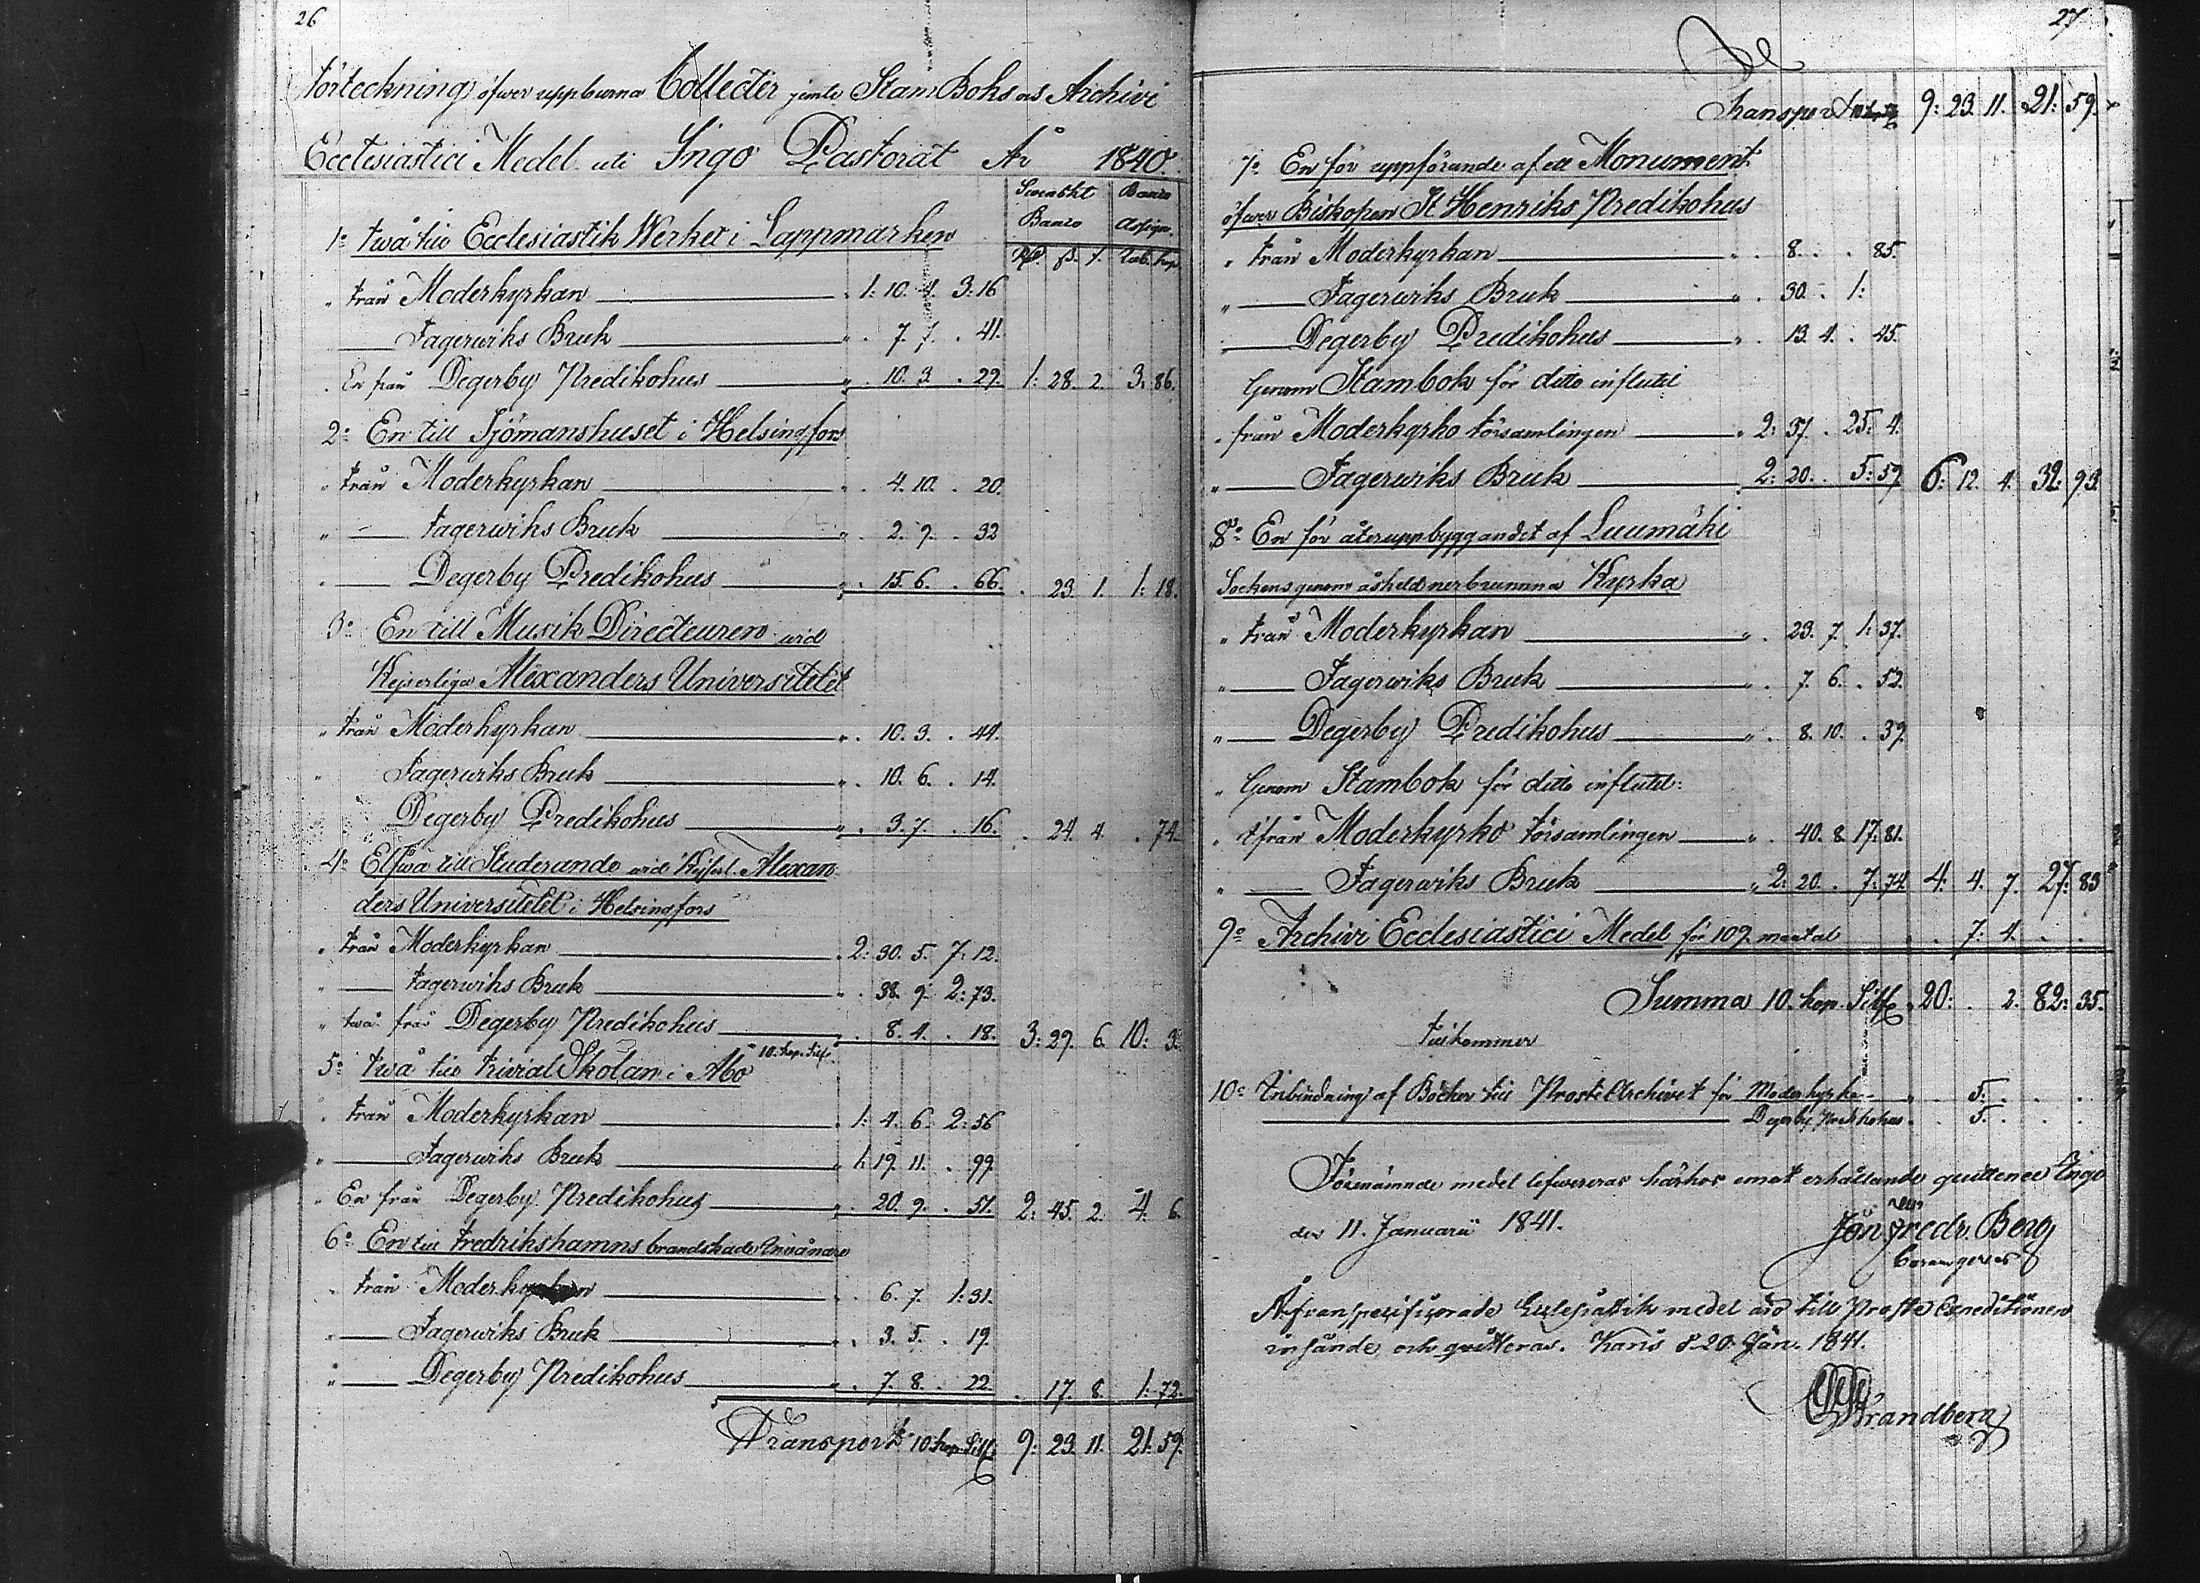 26
Förteckning öfwer uppburna Collecter jemte Stamboks och Archivi
Ecclesiastici Medel uti Ingo Pastorat År 1840.
Swenskt Banco
Banco Assign.
Rd. ß. r. Rub. kop.
1o Twå till Ecclesiastik Werket i Lappmarken
" Från Moderkyrkan 1: 10. 4. 3: 16
Fagerwiks Bruk " . 7. 7. . 41.
. En från Degerby Predikohus " . 10. 3. . 29. 1: 28. 2. 3: 86.
2o En till Sjömanshuset i Helsingfors
" Från Moderkyrkan " . 4. 10. . 20.
" Fagerwiks Bruk " . 2. 9. . 32
" Degerby Predikohus " . 15. 6. . 66. . 23. 1. 1: 18.
3o En till Musik Directeuren wid
Kejserliga Alexanders Universitetet
" Från Moderkyrkan " . 10. 3. . 44.
" Fagerwiks Bruk " . 10. 6. . 14.
Degerby Predikohus " . 3. 7. . 16. . 24. 4. . 74.
4o Elfwa till Studerande wid Kejserl. Alexan
ders Universitetet i Helsingfors
" Från Moderkyrkan . 2: 30. 5. 7: 12.
" Fagerwiks Bruk " . 38. 9. 2: 73.
" twå från Degerby Predikohus " . 8. 4. . 18. 3: 29. 6. 10: 3.
5o Twå till Trivial Skolan i Åbo 10. kop. Silf.
" Från Moderkyrkan . 1: 4. 6. 2: 56
" Fagerwiks Bruk " 1: 19. 11. . 99.
" En från Degerby Predikohus " . 20. 9. . 51. 2: 45. 2. 4: 6.
6o En till Fredrikshamns brandskade Invånare
" Från Moderkyrkan " . 6. 7. 1: 31.
" Fagerwiks Bruk " . 3. 5. . 19.
" Degerby Predikohus " . 7. 8. . 22. . 17. 8. 1: 72.
Transport 10 kop. Silf. 9: 23. 11. 21: 59.
27
Transport 10 kop. Silf. 9: 23. 11. 21: 59.
7o En för uppförande af ett Monument
öfwer Biskopen St Henriks Predikohus
" Från Moderkyrkan " . 8. . . 85.
" Fagerwiks Bruk " . 30. . 1:
" Degerby Predikohus " . 13. 4. . 45.
Genom Stambok för ditto influtit
" från Moderkyrko Församlingen " 2: 37. . 25: 4.
" Fagerwiks Bruk " 2: 20. . 5: 59. 6: 12. 4. 32: 93.
8o En för återuppbyggandet af Luumäki
Sockens genom åskeld nerbrunna Kyrka
" Från Moderkyrkan " . 23. 7. 1: 37.
" Fagerwiks Bruk " . 7. 6. . 52.
" Degerby Predikohus " . 8. 10. . 39.
" Genom Stambok för ditto influtit:
" från Moderkyrko Församlingen " . 40. 8. 17: 81.
" Fagerwiks Bruk " 2: 20. . 7: 74. 4: 4. 7. 27: 83
9o Archivi Ecclesiastici Medel för 109. mantal . . 7: 4. . .
Summa 10. kop. Silf. 20: . 2. 82: 35.
Tillkommer
10o Inbindning af Böcker till Prosti Archivet för Moderkyrka " . 5. . . .
Degerby Predikohus . . 5. . . .
Förenämnde medel lefwereras härhos emot erhållande quittence Ingo
den 11. Januarii 1841.
Fredr. Berg
Ofvanspecificerade Ecclesiastik medel äro till Prosti Expeditionen
insände och quitteras. Karis d. 20 Jan. 1841.
Strandberg